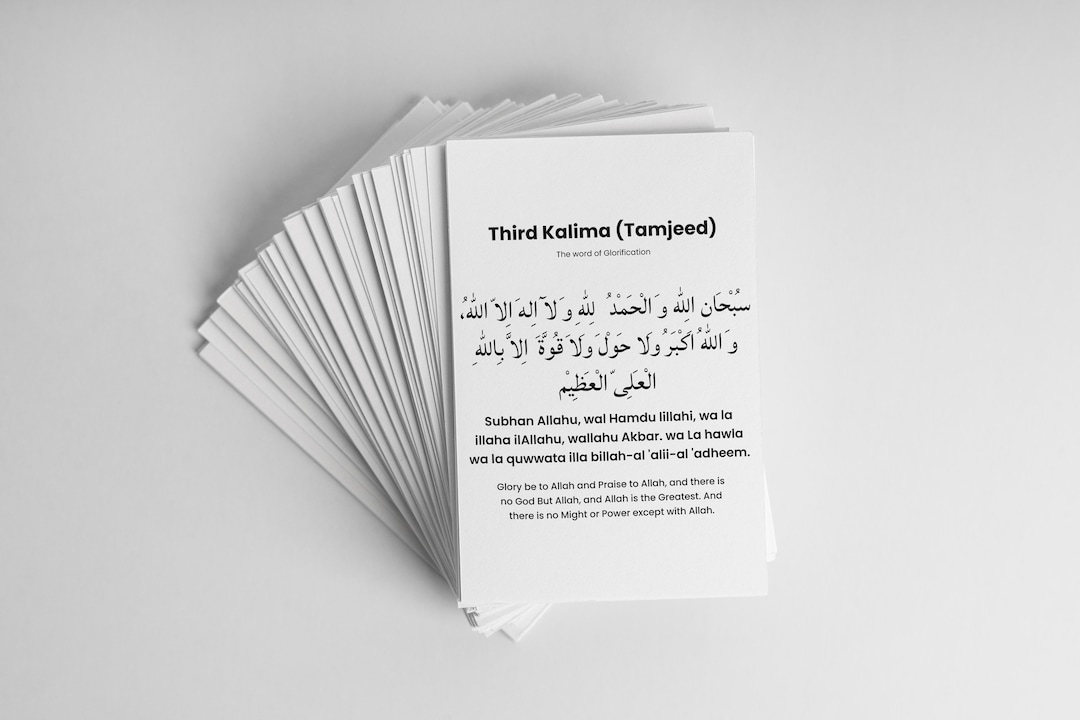 Third Kalima (Tamjeed)
The word of Glorification
سُبْحَان اللّٰهِ وَ الْحَمْدُ لِلّٰهِ وَ لَآ اِلٰهَ اِلاَّ اللّٰهُ،
وَ اللّٰهُ اَكْبَرُ وَلَا حَوْلَ وَلَا قُوَّةَ اِلاَّ بِاللّٰهِ
الْعَلِىِّ الْعَظِيْمِ
Subhan Allahu, wal Hamdu lillahi, wa la
illaha ilAllahu, wallahu Akbar. wa La hawla
wa la quwwata illa billah-al 'alii-al 'adheem.
Glory be to Allah and Praise to Allah, and there is
no God But Allah, and Allah is the Greatest. And
there is no Might or Power except with Allah.